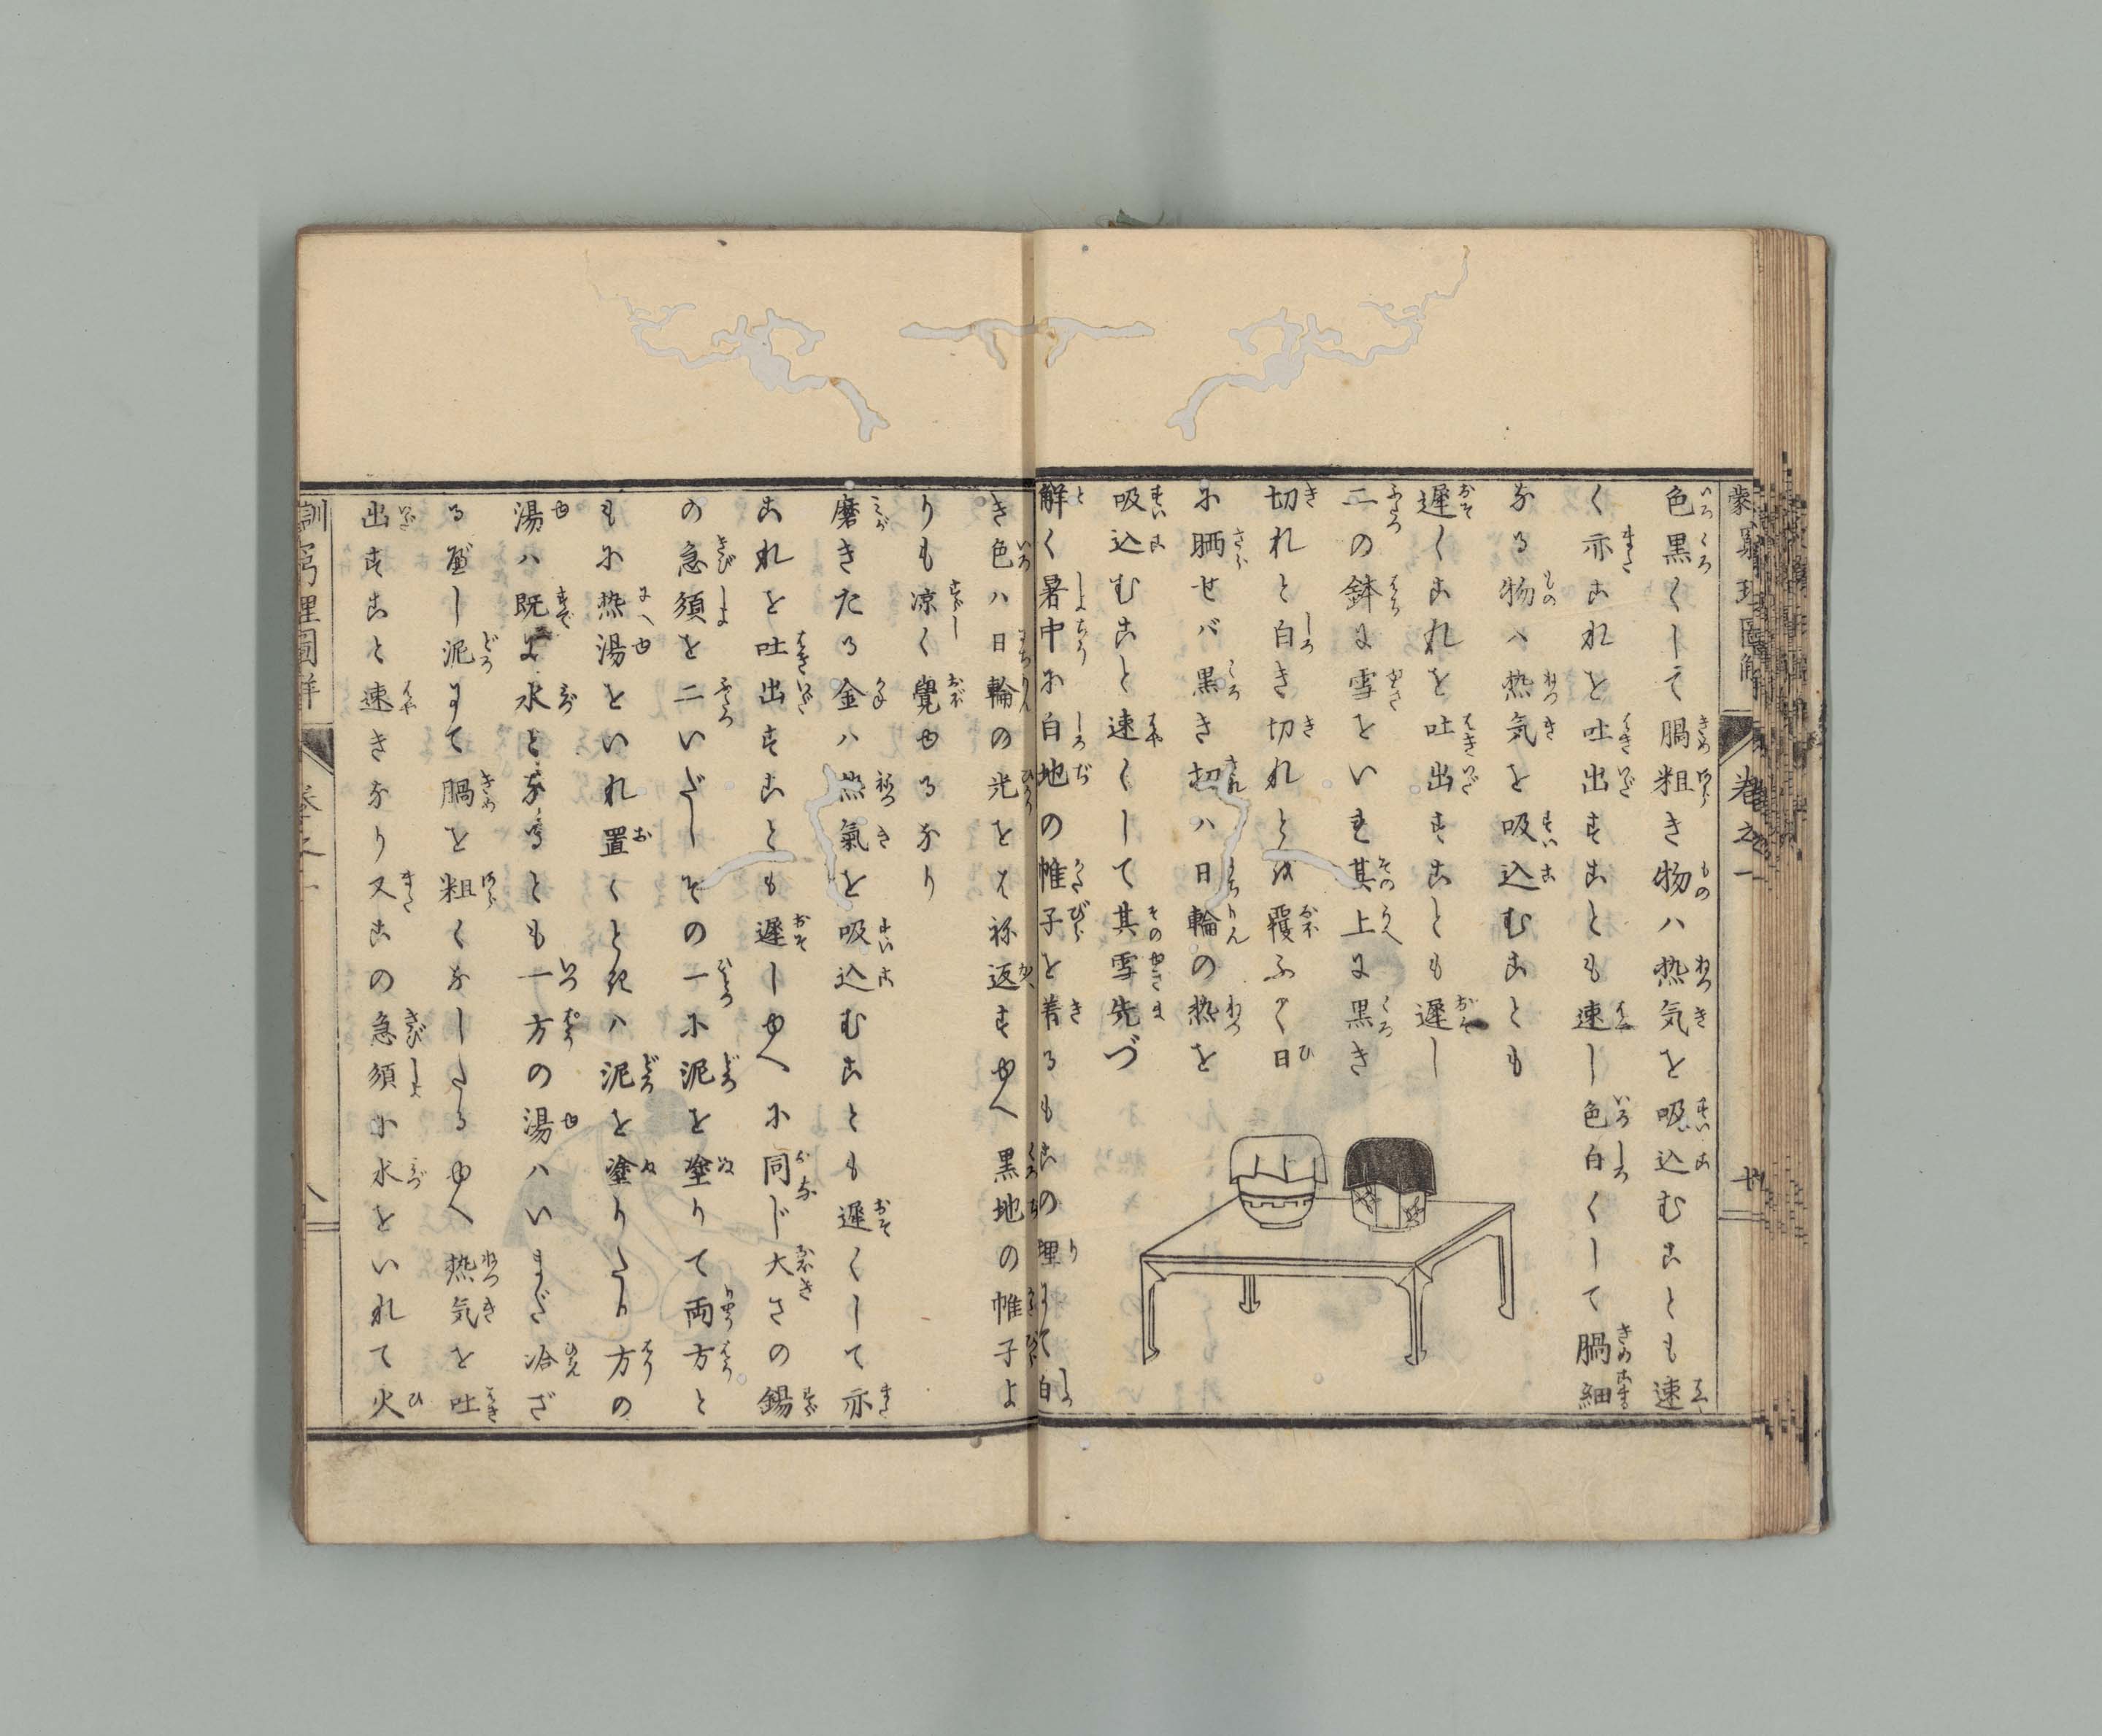 色黒くして膓粗き物ハ热気を吸込むこととも速
く亦これを吐出すこととも速し色白くして膓細
なる物ハ热気を吸込むこととも
遅くこれを吐出すこととも遅し
二の鉢に雪をいれ其上に黒き
切れと白き切れとを覆ふかく日
に晒せバ黒き切ハ日輪の热を
吸込むこと速くして其雪先づ
解く暑中に白地の帷子を着るもこの理にて白
き色ハ日輪の光をはね返すゆへ黒地の帷子よ
りも凉く覺ゆるなり
磨きたる金ハ热氣を吸込むこととも遅くして亦
これを吐出すこととも遅しゆへに同じ大さの錫
の急須を二いだしその一に泥を塗りて両方と
もに热湯をいれ置くときハ泥を塗りたり方の
湯ハ既に水となるとも一方の湯ハいまだ冾ざ
るべし泥にて膓を粗くなしたるゆへ热気を吐
出すこと速きなり又この急須に水をいれて火
訓窮理圖解
巻之一
八